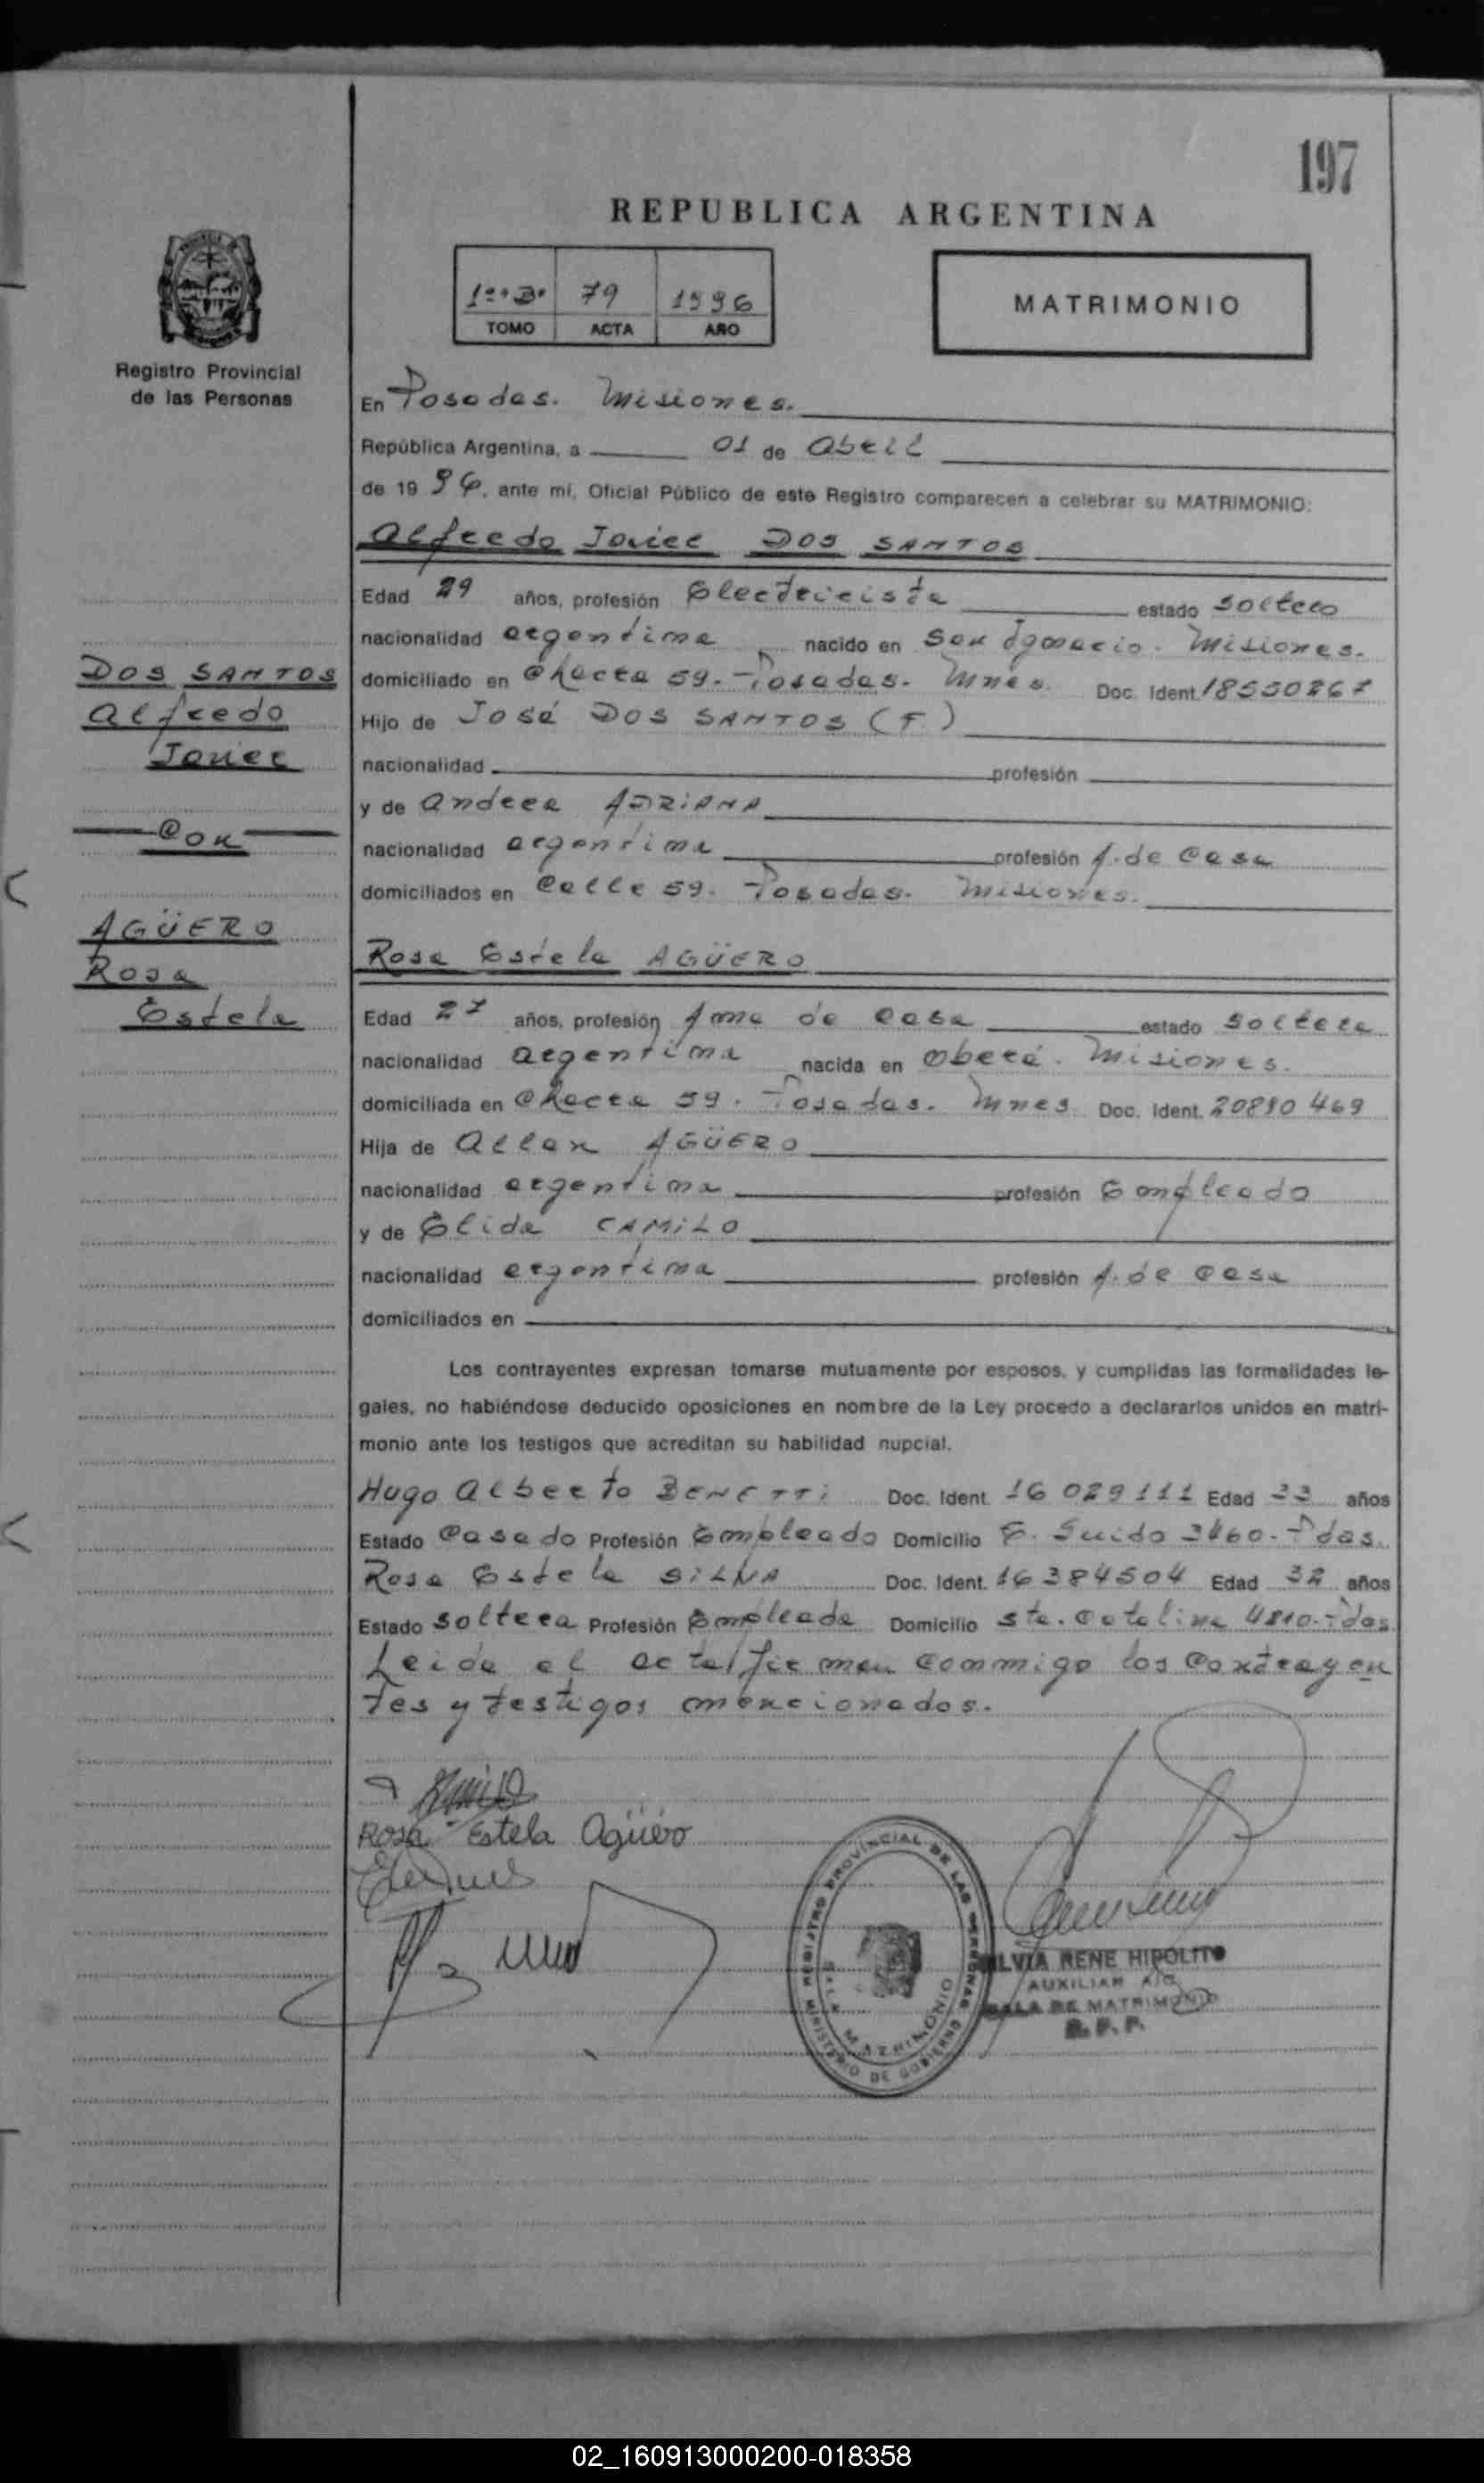 197
REPUBLICA ARGENTINA
1º "B" 79 1996
TOMO ACTA AÑO
MATRIMONIO
Registro Provincial
de las Personas
En Posadas. Misiones.
República Argentina, a 01 de Abril
de 1996, ante mí, Oficial Público de este Registro comparecen a celebrar su MATRIMONIO:
Alfredo Javier DOS SANTOS
Edad 29 años, profesión Electricista estado soltero
nacionalidad argentina nacido en San Ignacio. Misiones.
domiciliado en Chacra 59. Posadas. Mnes. Doc. Ident. 18550267
Hijo de José DOS SANTOS (F)
nacionalidad profesión
y de Andrea ADRIANA
nacionalidad argentina profesión A. de Casa
domiciliados en Calle 59. Posadas. Misiones.
DOS SANTOS
Alfredo
Javier
Con
AGÜERO
Rosa
Estela
Rosa Estela AGÜERO
Edad 27 años, profesión Ama de Casa estado soltera
nacionalidad argentina nacida en Oberá. Misiones.
domiciliada en Chacra 59. Posadas. Mnes Doc. Ident. 20890469
Hija de Allan AGÜERO
nacionalidad argentina profesión Empleado
y de Elida CAMILO
nacionalidad argentina profesión A. de Casa
domiciliados en
Los contrayentes expresan tomarse mutuamente por esposos, y cumplidas las formalidades le-
gales, no habiéndose deducido oposiciones en nombre de la Ley procedo a declararlos unidos en matri-
monio ante los testigos que acreditan su habilidad nupcial.
Hugo Alberto BENETTI Doc. Ident. 16029111 Edad 33 años
Estado Casado Profesión Empleado Domicilio E. Guido 3460. Pdas.
Rosa Estela SILVA Doc. Ident. 16384504 Edad 32 años
Estado soltera Profesión Empleada Domicilio Sta. Catalina 4810. Pdas
Leida el acta, firman conmigo los Contrayen
tes y testigos mencionados.
Rosa Estela Agüero
REGISTRO PROVINCIAL DE LAS PERSONAS
MINISTERIO DE GOBIERNO
SALA MATRIMONIO
SILVIA RENE HIPOLITO
AUXILIAR A/C
SALA DE MATRIMONIO
R. P. P.
02_160913000200-018358